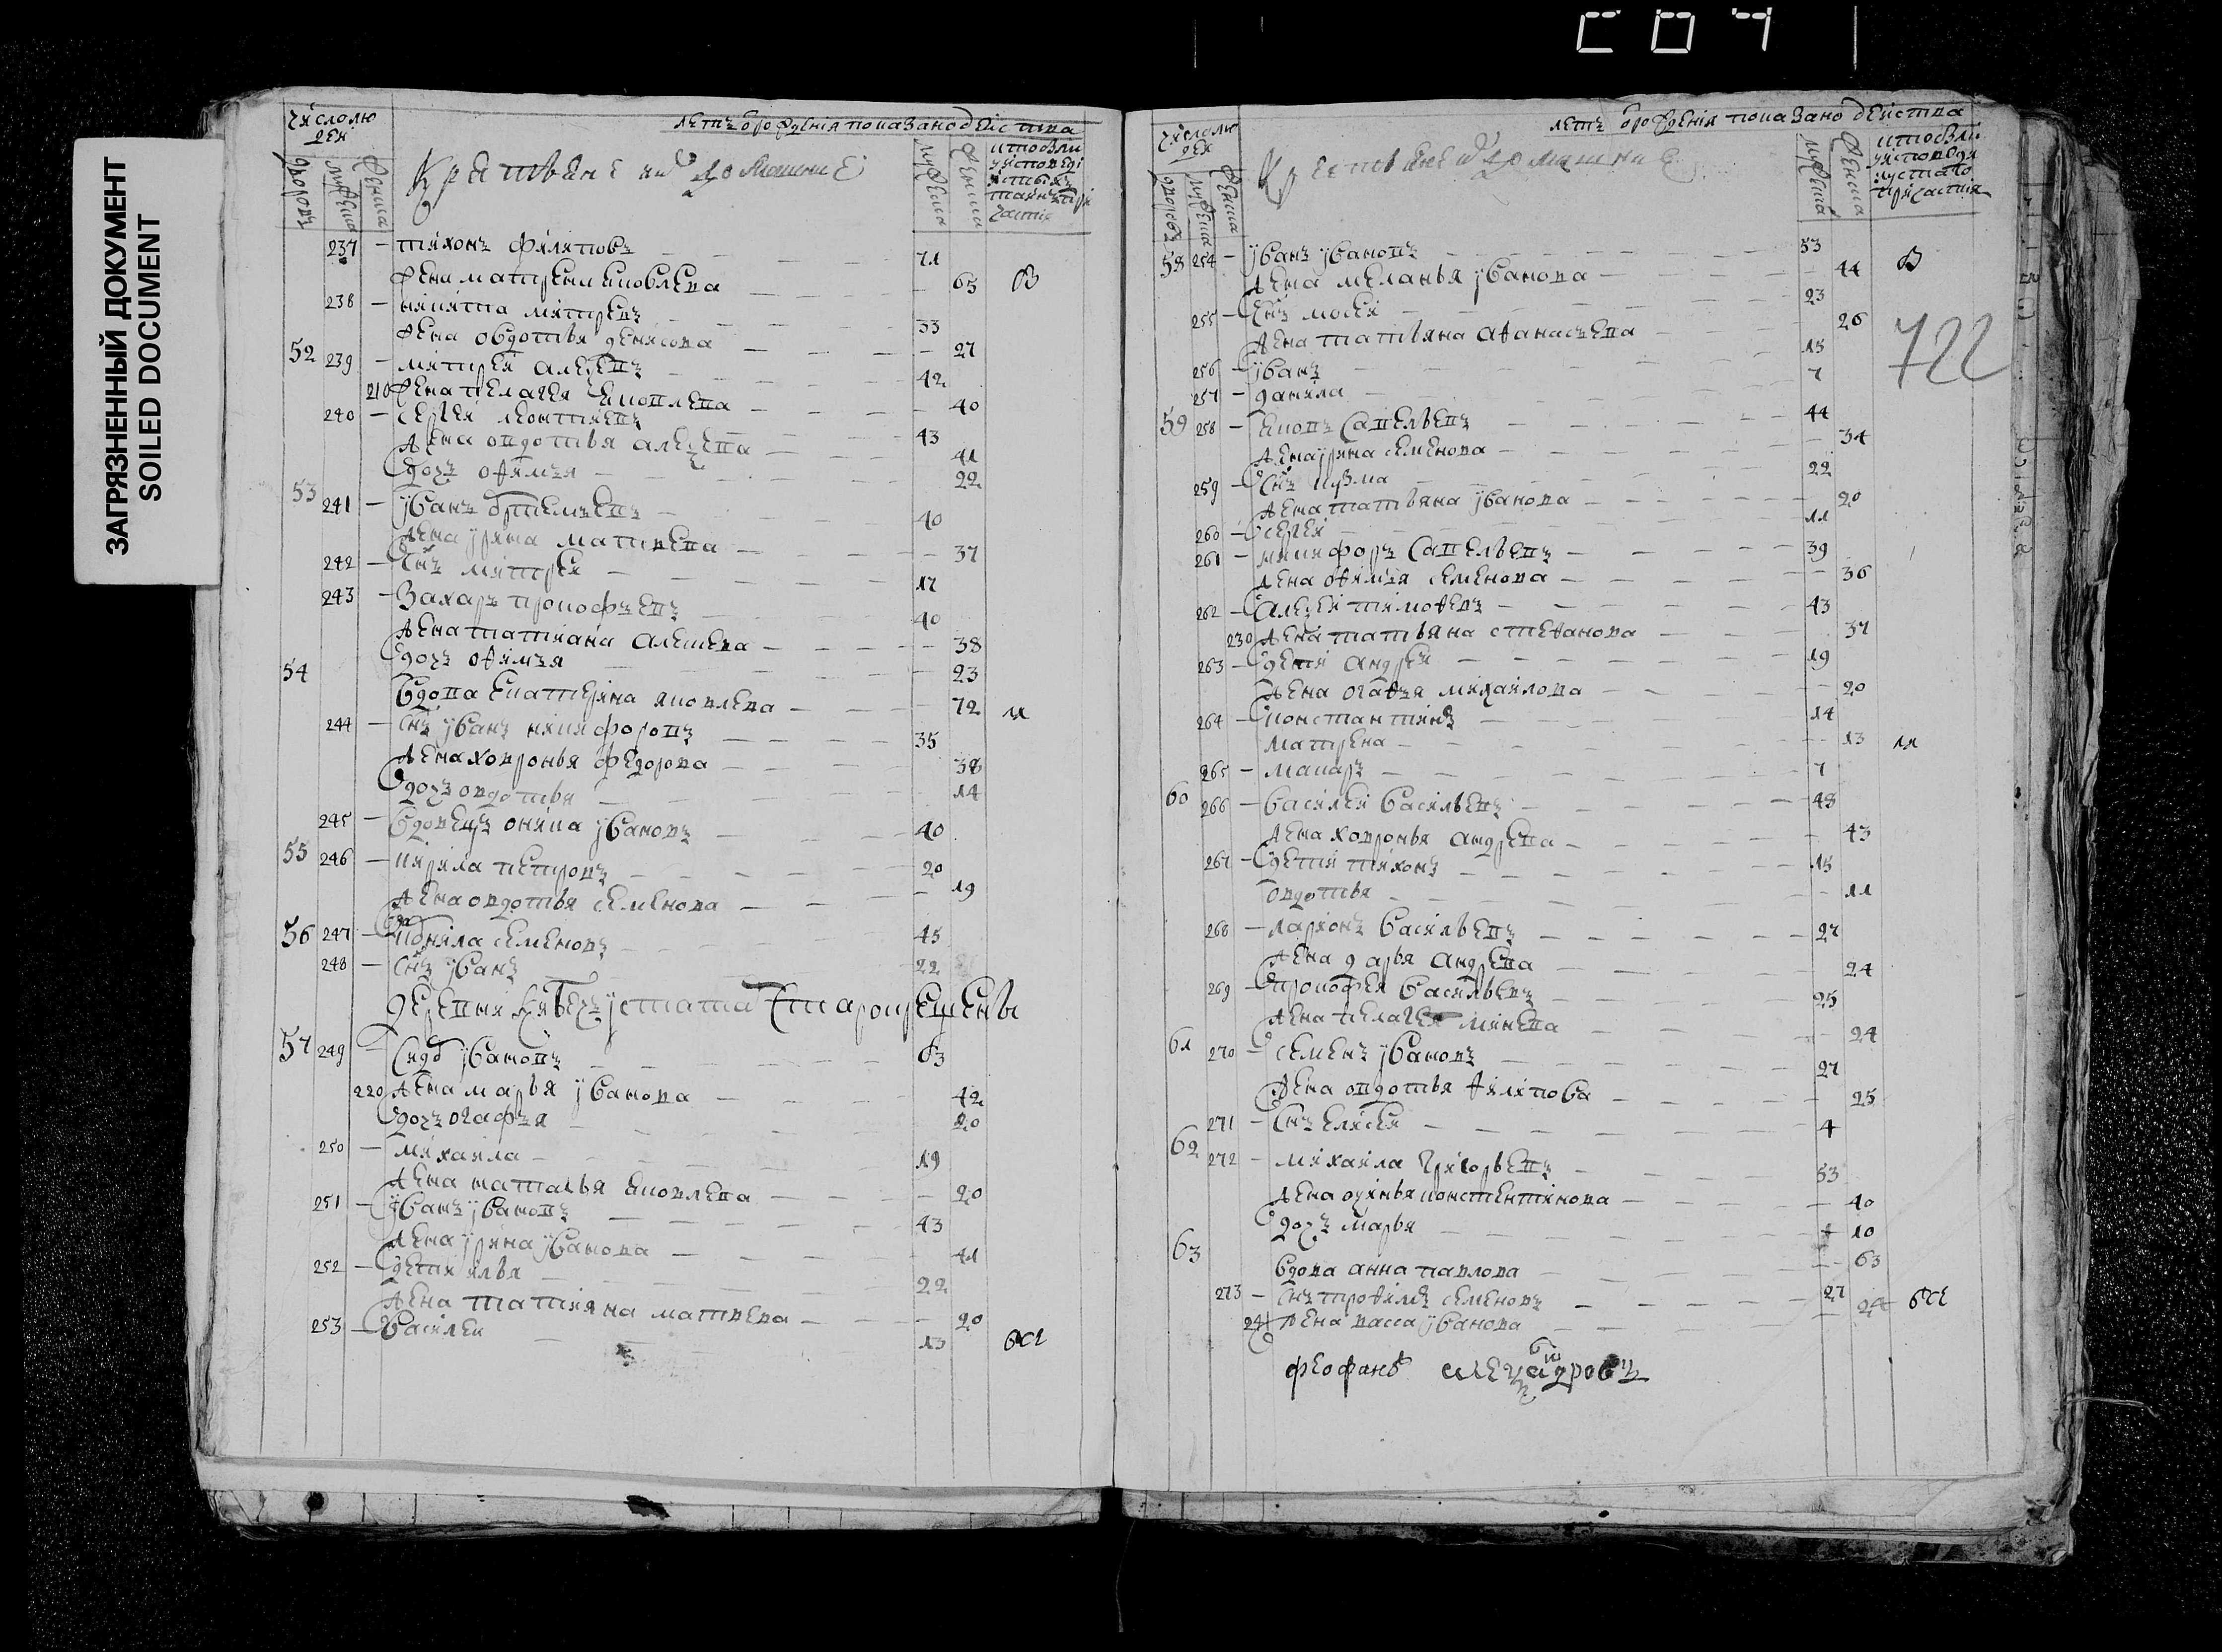 ЗАГРЯЗНЕННЫЙ ДОКУМЕНТ
SOILED DOCUMENT
число лю
дей
летъ от рождения показано действа
дворовъ
мужеска
женска
Крестьяне и домашние
мужеска
женска
237 – тихонъ филиповъ 71
жена матрена яковлева 65
238 – никита митревъ 33
жена овдотья денисова 27
52 239 – митрей алеѯевъ 42
210 жена пелагея яковлева 40
240 – сергей леонтиевъ 43
жена овдотья алеѯева 41
дочь офимья 22
53
241 – иванъ артемьевъ 40
жена ирина матвеева 37
242 – снъ митрей 17
243 – захаръ прокофьевъ 40
жена татиана алеѯеева 38
дочь офимья 23
54
вдова екатерина яковлева 72
244 – снъ иванъ никифоровъ 35
жена ховронья федорова 38
дочь овдотья 14
245 – вдовецъ оника ивановъ 40
55 246 – кирила петровъ 20
жена овдотья семенова 19
56 247 – данила семеновъ 45
248 – снъ иванъ 22
деревни
57 249 – ивановъ 63
220 жена марья иванова 42
дочь огафья 20
250 – михаила 19
жена наталья яковлева 20
251 – иванъ ивановъ 43
жена ирина иванова 41
252 – дети илья 22
жена татияна матвеева 20
253 – василей 13
число лю
дей
летъ от рождения показано действа
дворовъ
мужеска
женска
Крестьяне и домашние
мужеска
женска
722
58 254 – иванъ ивановъ 53
жена меланья иванова 44
255 – снъ мосей 23
жена татьяна афанасьева 26
256 – иванъ 15
257 – данила 7
59 258 – яковъ савельевъ 44
жена ирина семенова 34
259 – снъ кузма 22
жена татьяна иванова 20
260 – сергей 11
261 – никифоръ савельевъ 39
жена офимья семенова 36
262 – алеѯей тимофевъ 43
230 жена татьяна стефанова 37
263 – дети андрей 19
жена огафья михаилова 20
264 – константинъ 14
матрена 13
265 – макаръ 7
60 266 – василей васильевъ 48
жена ховронья андреева 43
267 – дети тихонъ 15
овдотья 11
268 – ларионъ васильевъ 27
жена дарья андреева 24
269 – прокофей васильевъ 25
жена пелагея минева 24
61 270 – семенъ ивановъ 27
жена овдотья филипова 25
271 – снъ елисей 4
62 272 – михаила григорьевъ 53
жена констентинова 40
дочь марья 10
63
вдова анна павлова 63
273 – снъ трофимъ семеновъ 27
241 жена васса иванова 24
феофанъ